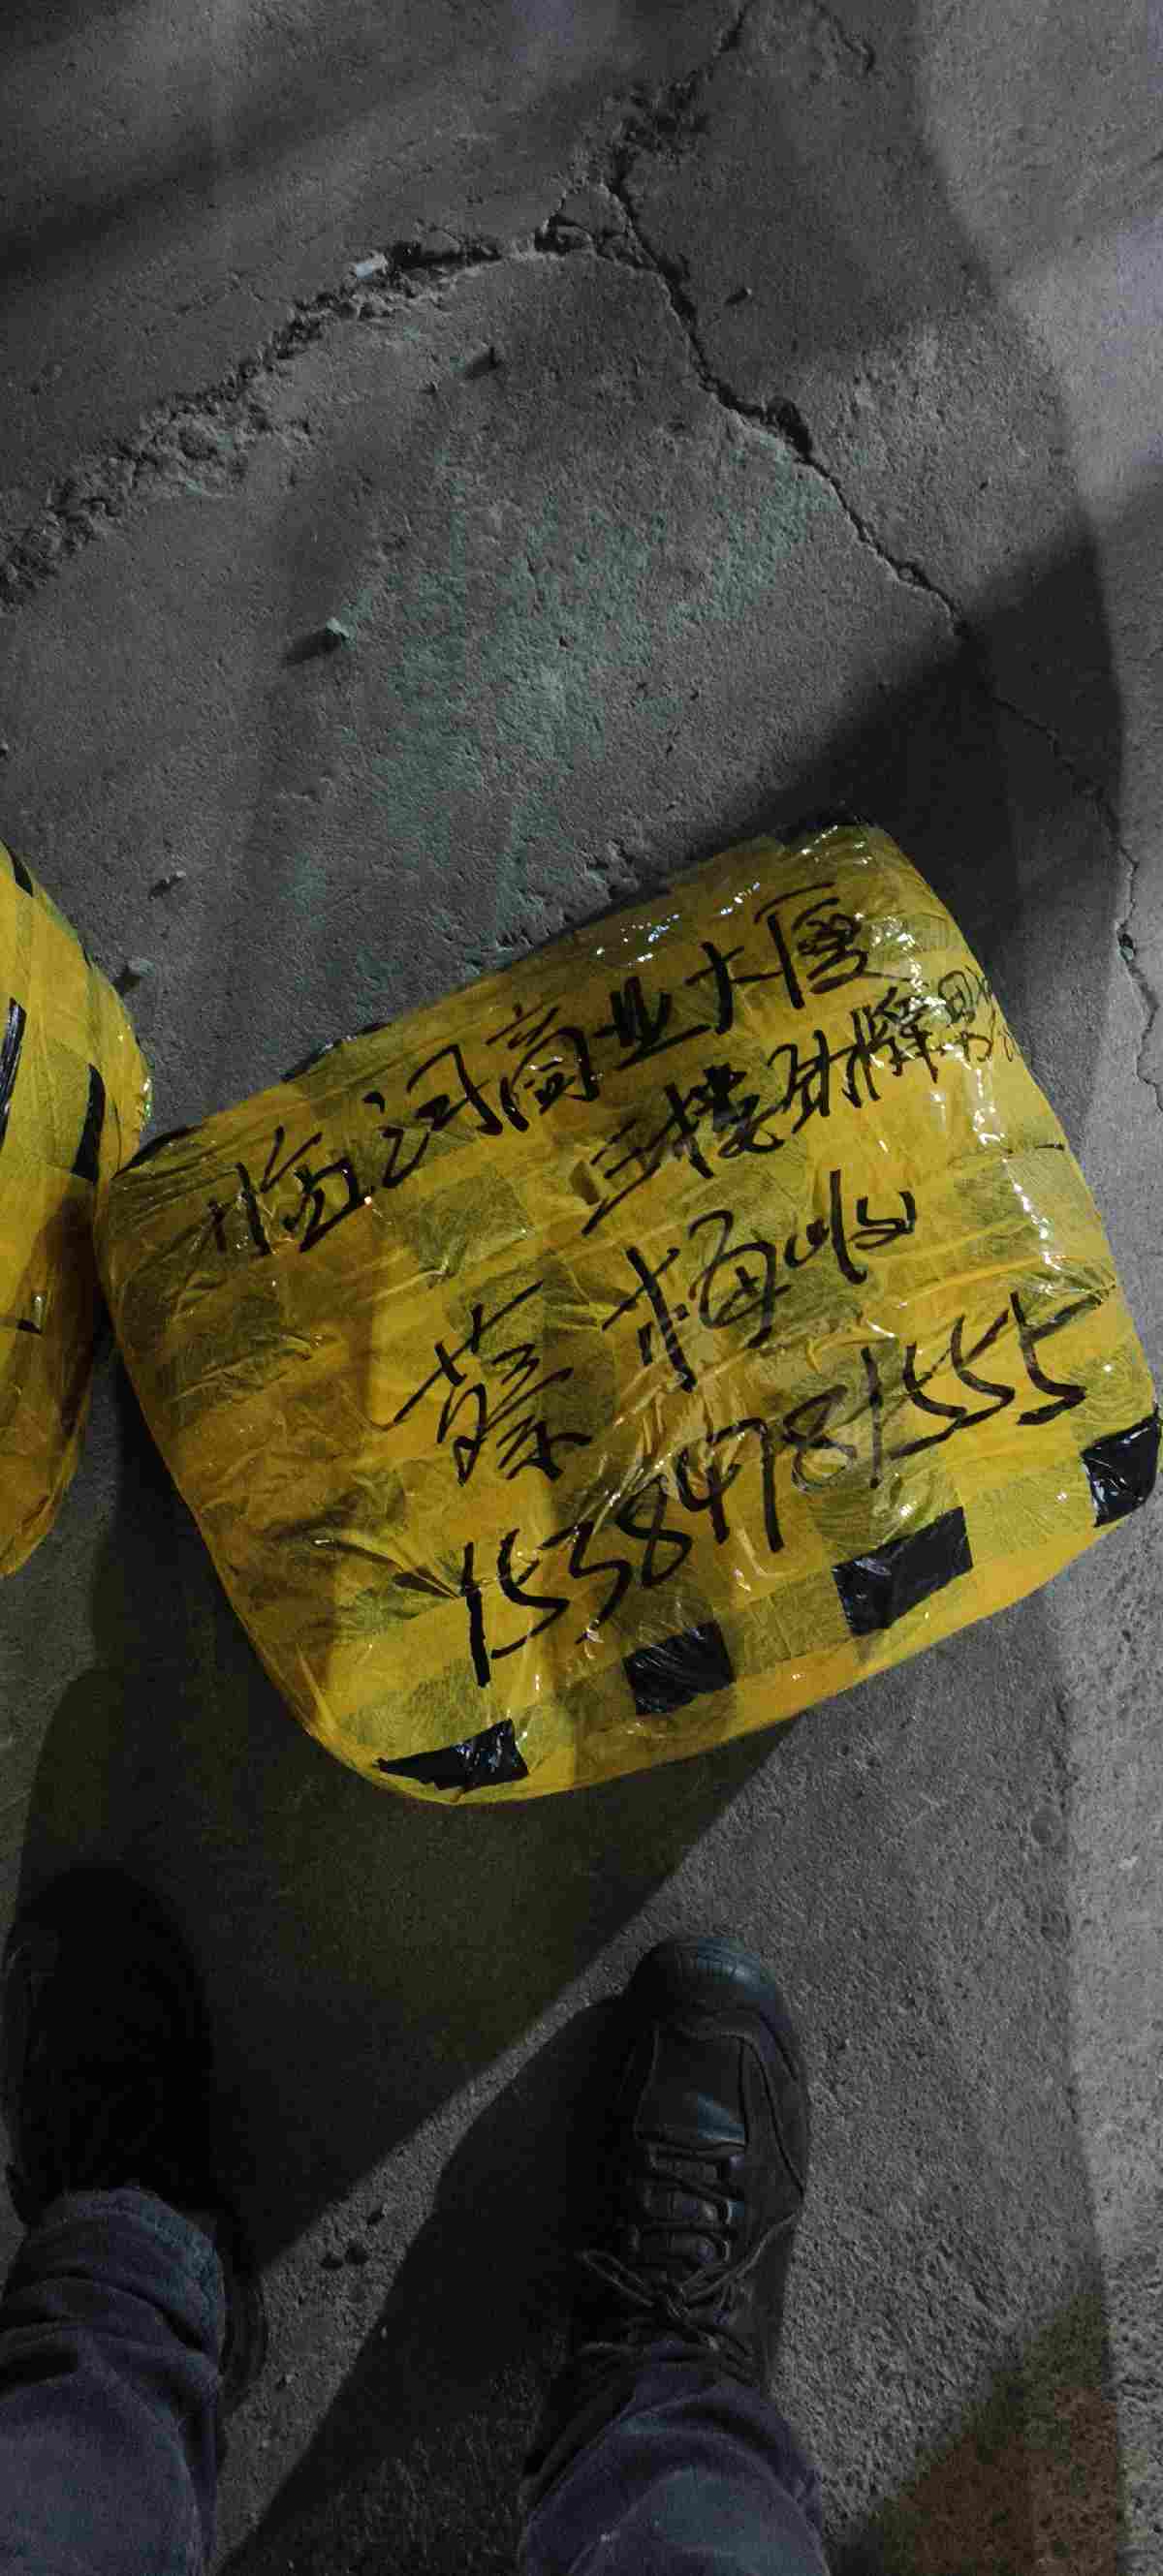 临河商业大厦
三楼
蔡梅收
15384781555